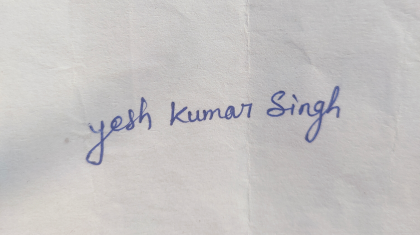 yesh Kumar Singh